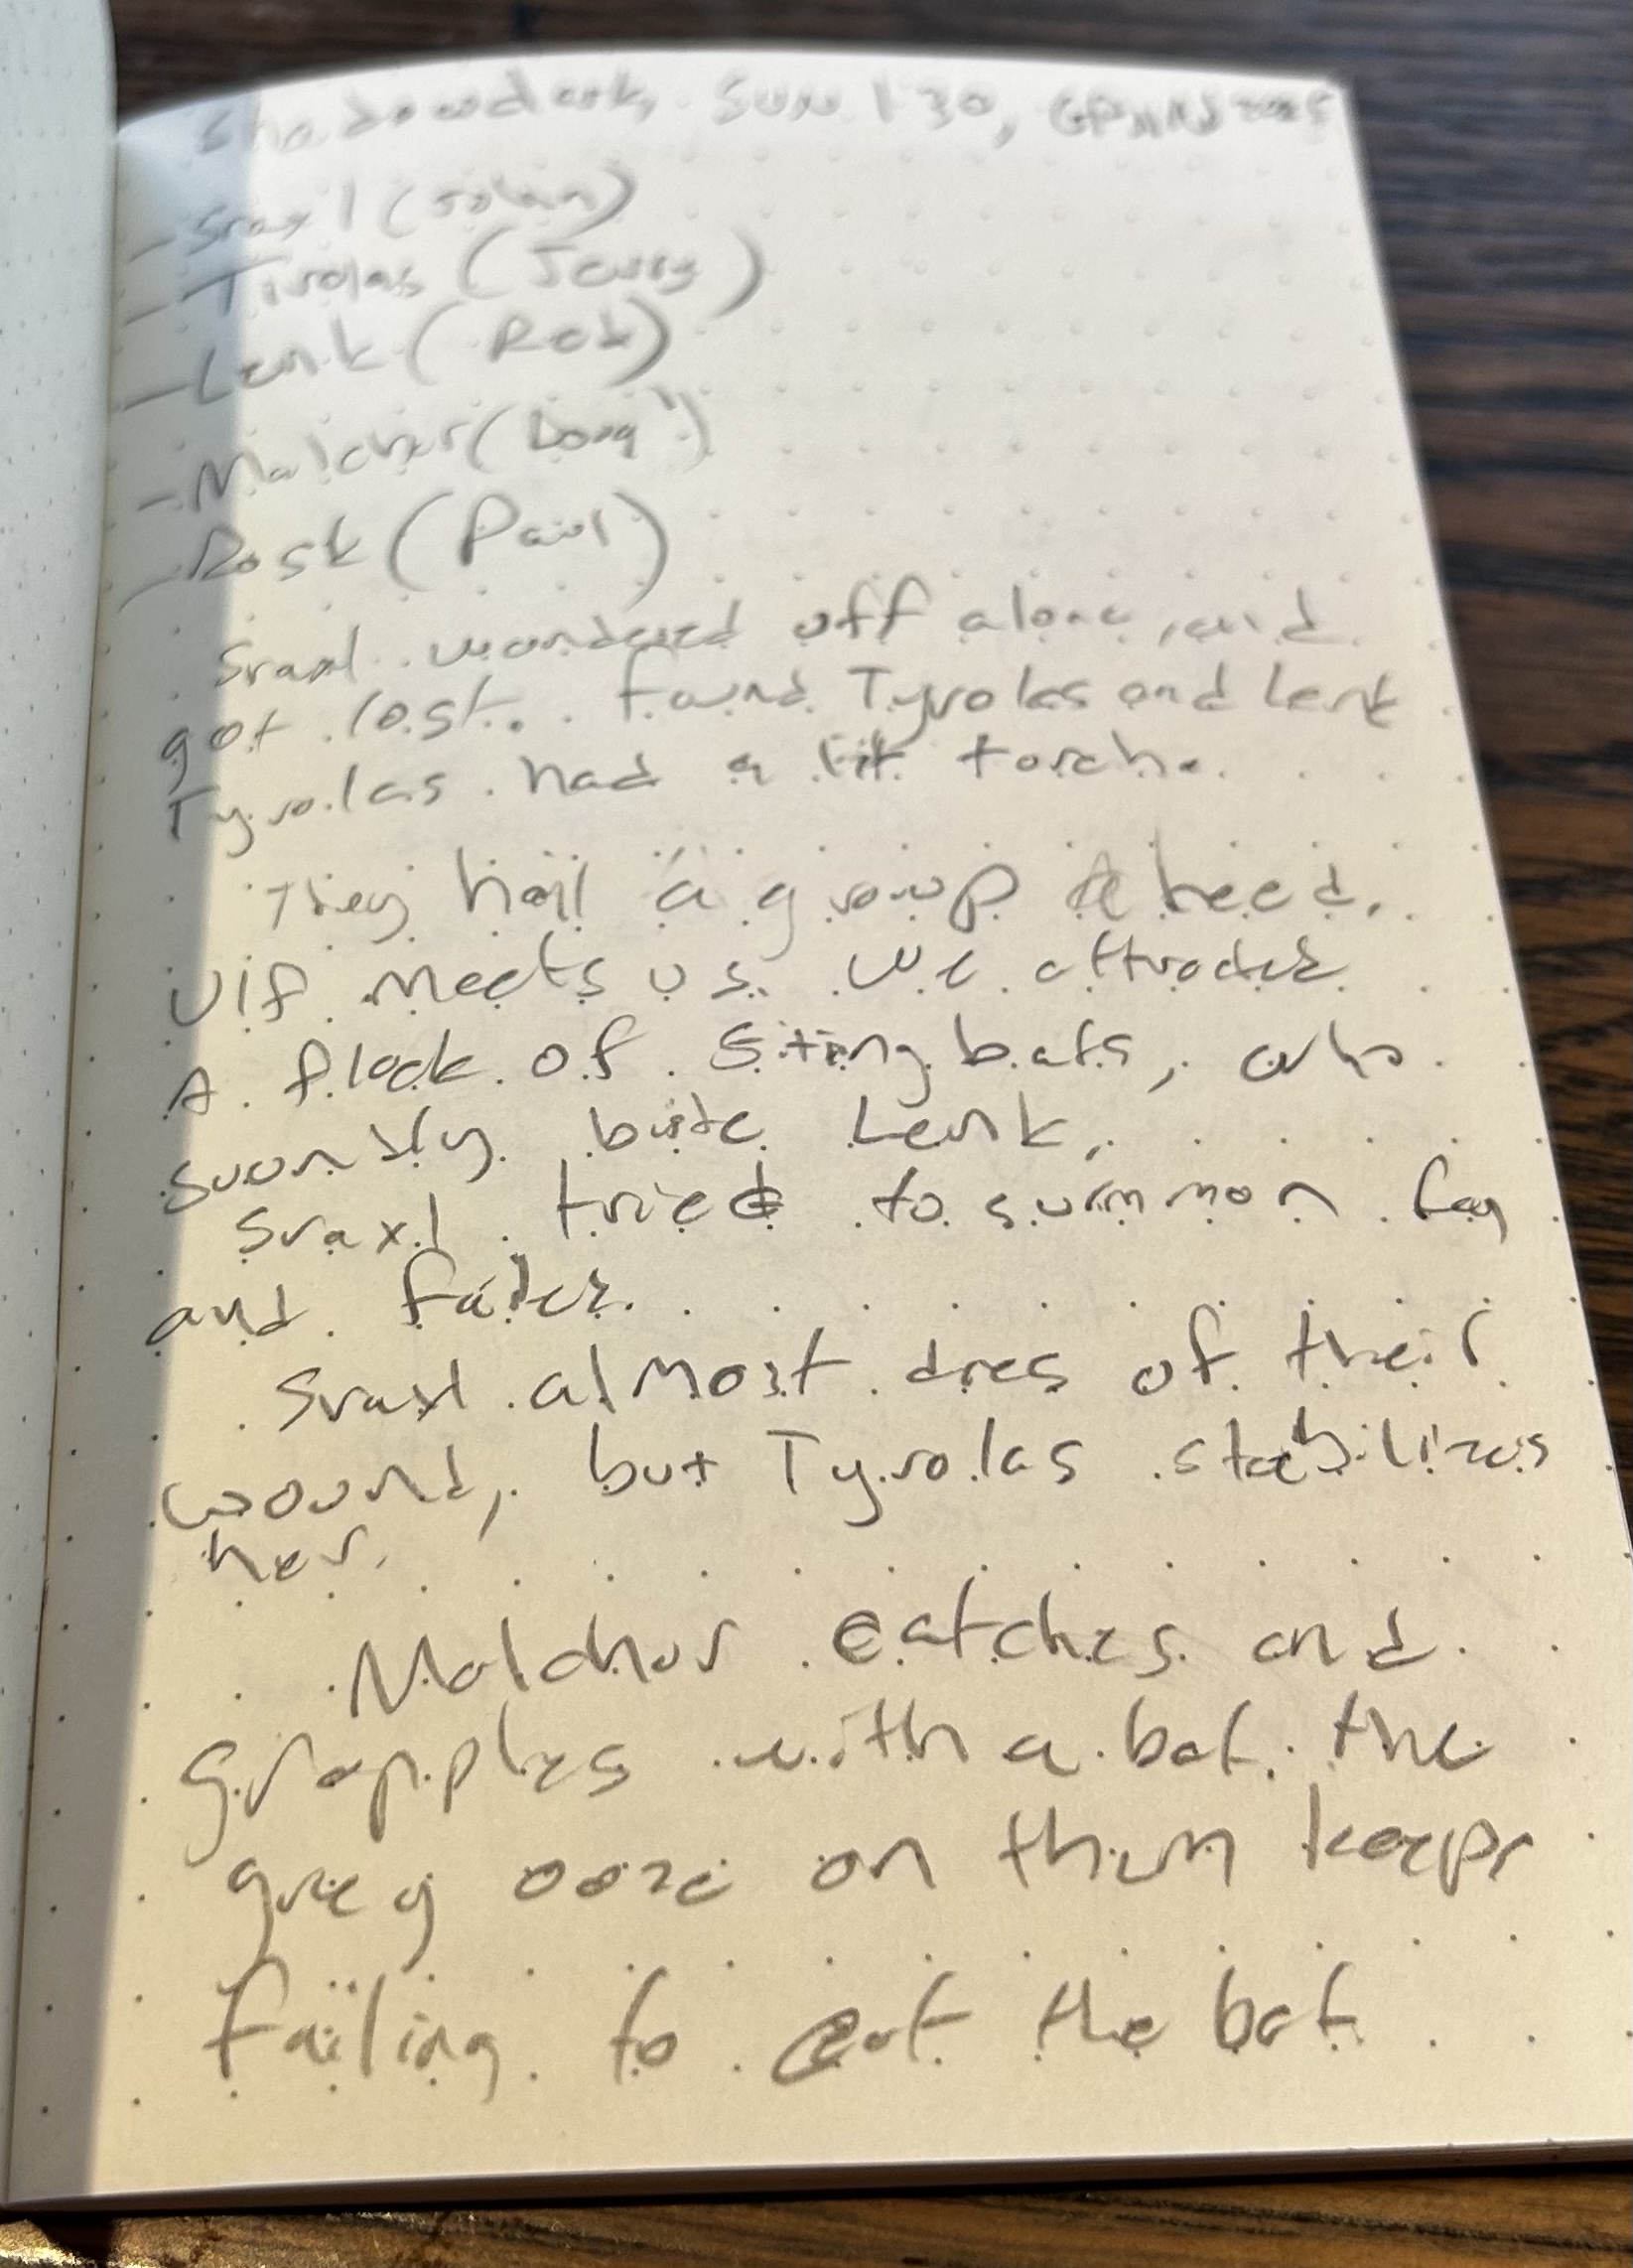 Shadowdark, Sun 1 30,
- Sraxl (
- Tirolas (Jerry)
- Lenk (Rob)
- Malchor (Doug)
- Rosk (Paul)
Sraxl wondered off alone, and
got lost. Found Tyrolas and Lenk
Tyrolas had a lit torch.
They hail a group ahead.
Ulf meets us. We attracted
A flock of stingbats, who
soundly bite Lenk.
Sraxl tried to summon fog
and failed.
Sraxl almost dies of their
wound, but Tyrolas stabilizes
her.
Malchor catches and
grapples with a bat. the
grey ooze on them keeps
failing to eat the bat